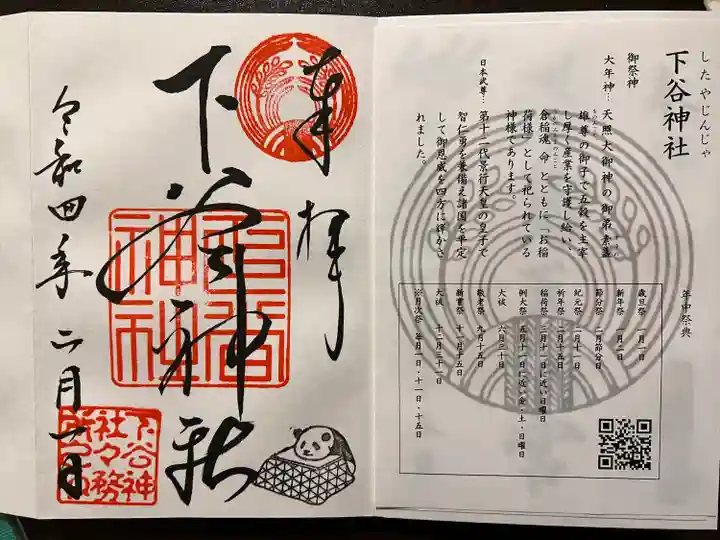 奉拝
下谷神社
令和四年二月一日
下谷神
社々務
したやじんじゃ
下谷神社
御祭神
大年神… 天照大御神の御弟素盞
雄尊の御子で五穀を主宰
し厚く産業を守護し給い…
倉稲魂 命 とともに「お稲
荷様」として祀られている
神様であります。
日本武尊… 第十二代景行天皇の皇子で
智仁勇を兼備え諸国を平定
して御恩威を四方に輝かさ
れました。
年中祭典
歳旦祭 一月一日
新年祭 一月二日
節分祭 二月節分日
紀元祭 二月十一日
祈年祭 二月十五日
稲荷祭 三月十一日に近い日曜日
例大祭 五月十一日に近い金・土・日曜日
大祓 六月三十日
敬老祭 九月十五日
新嘗祭 十一月十五日
大祓 十二月三十一日
※月次祭 毎月一日・十一日・十五日